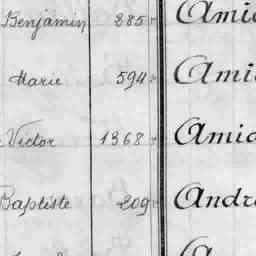 Benjamin 285 Ami
Marie 594 Ami
Victor 1368 Amic
Baptiste 209 Andr